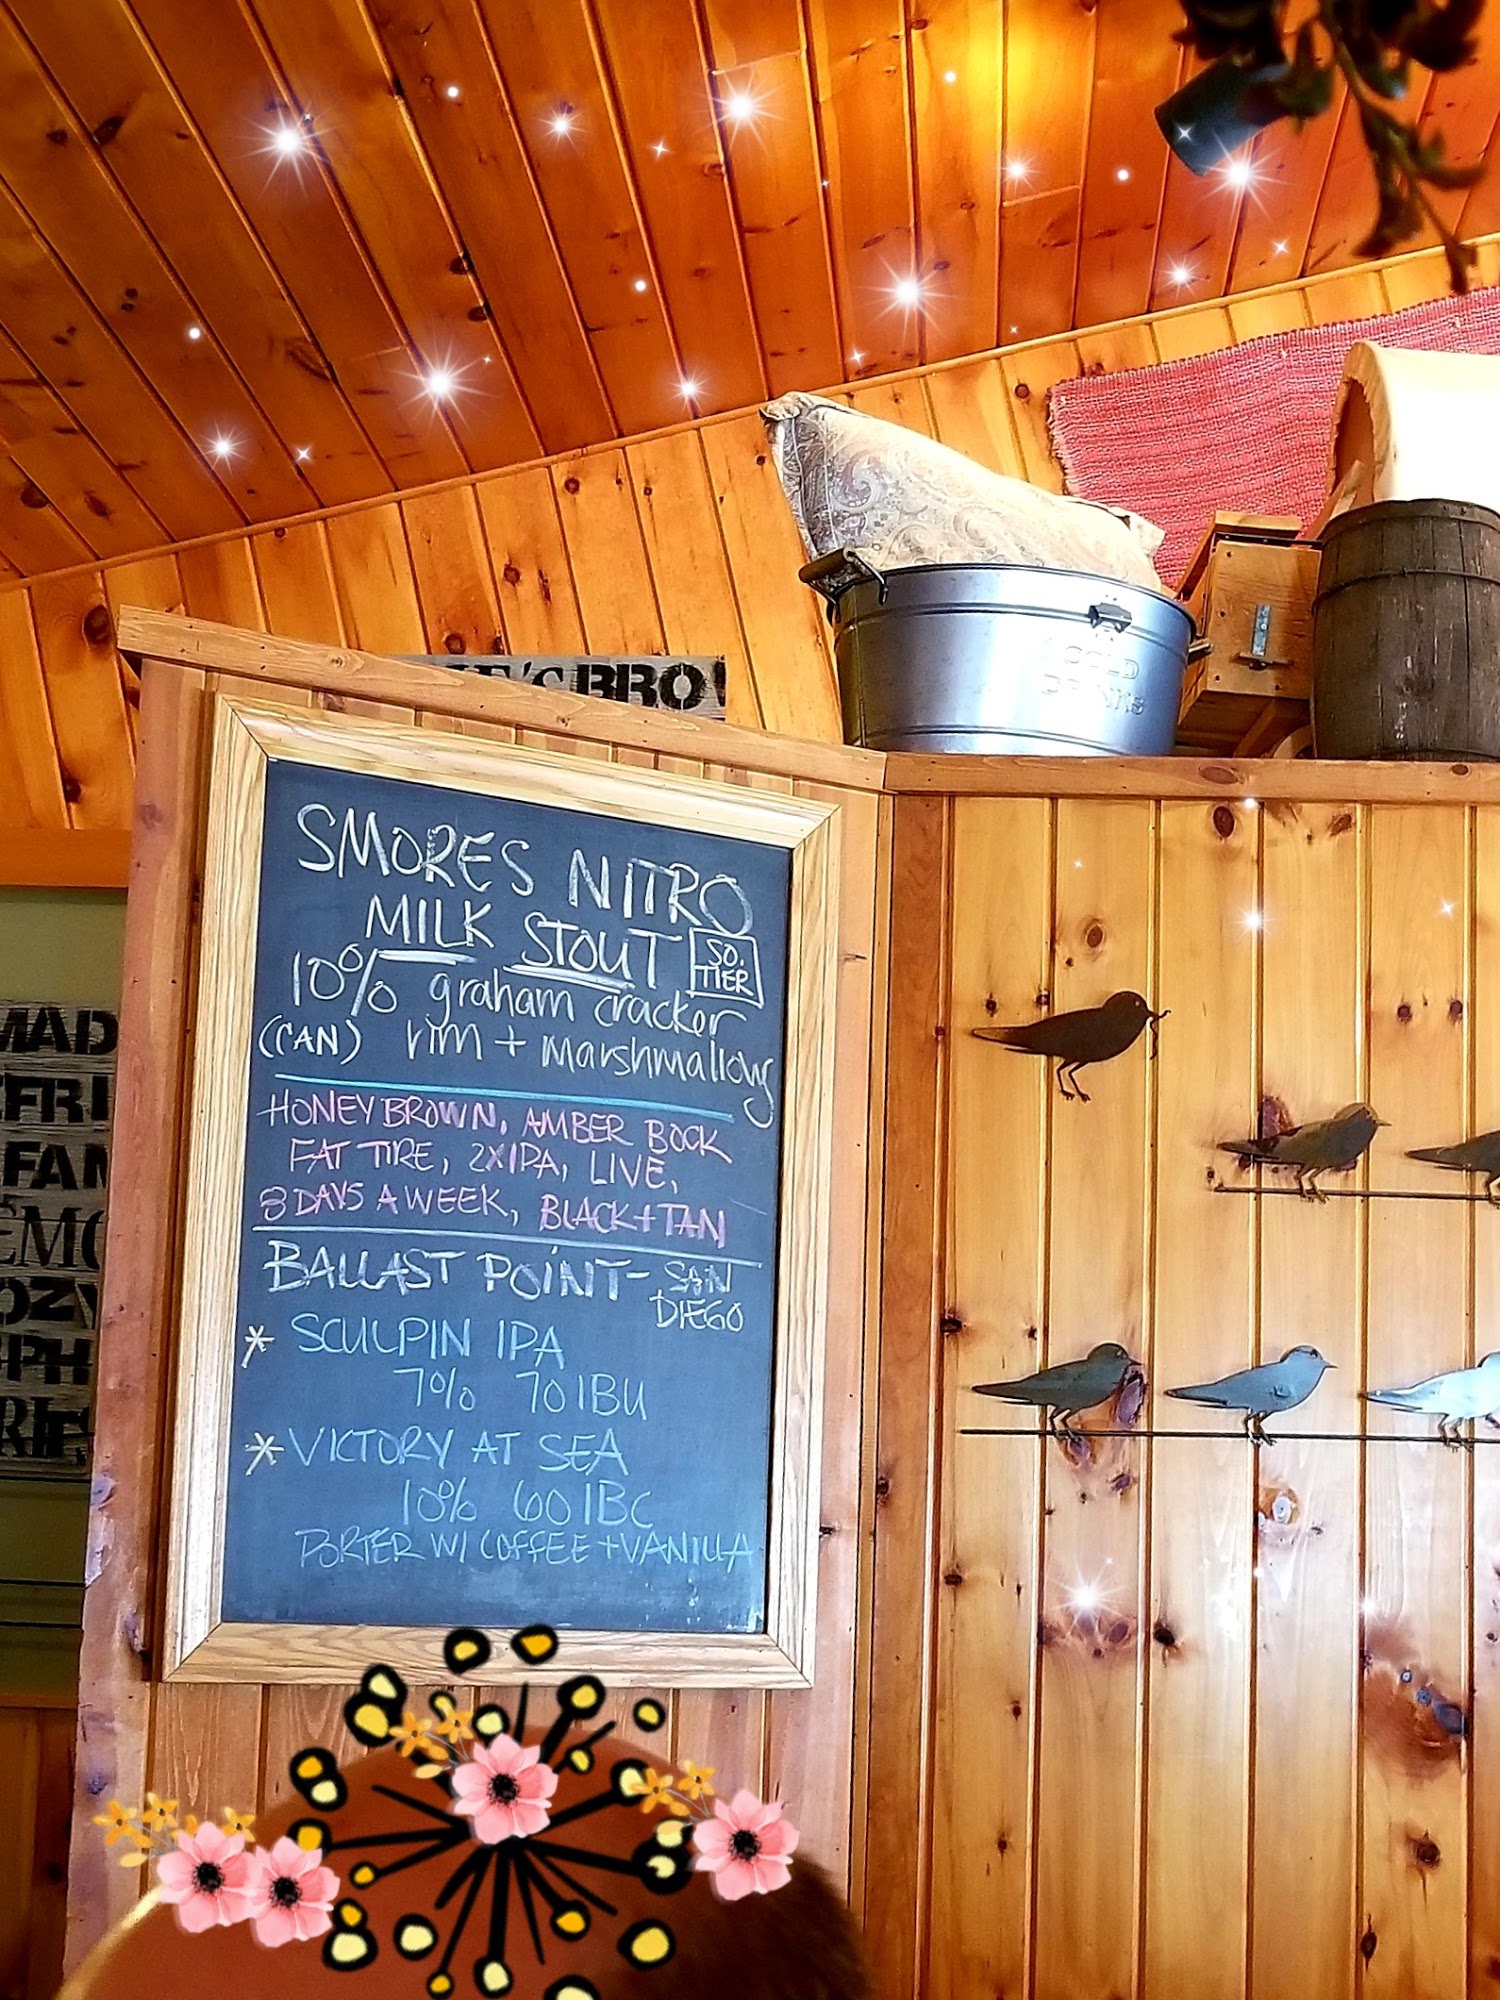 BRO!
COLD
DRINKS
SMORES NITRO
MILK STOUT
SO.
TIER
10% graham cracker
(CAN) rim + marshmallows
HONEY BROWN, AMBER BOCK
FAT TIRE, 2XIPA, LIVE,
8 DAYS A WEEK, BLACK+TAN
BALLAST POINT- SAN
DIEGO
* SCULPIN IPA
7% 70 IBU
* VICTORY AT SEA
10% 60 IBC
PORTER W/ COFFEE + VANILLA
MAD
FRI
FAM